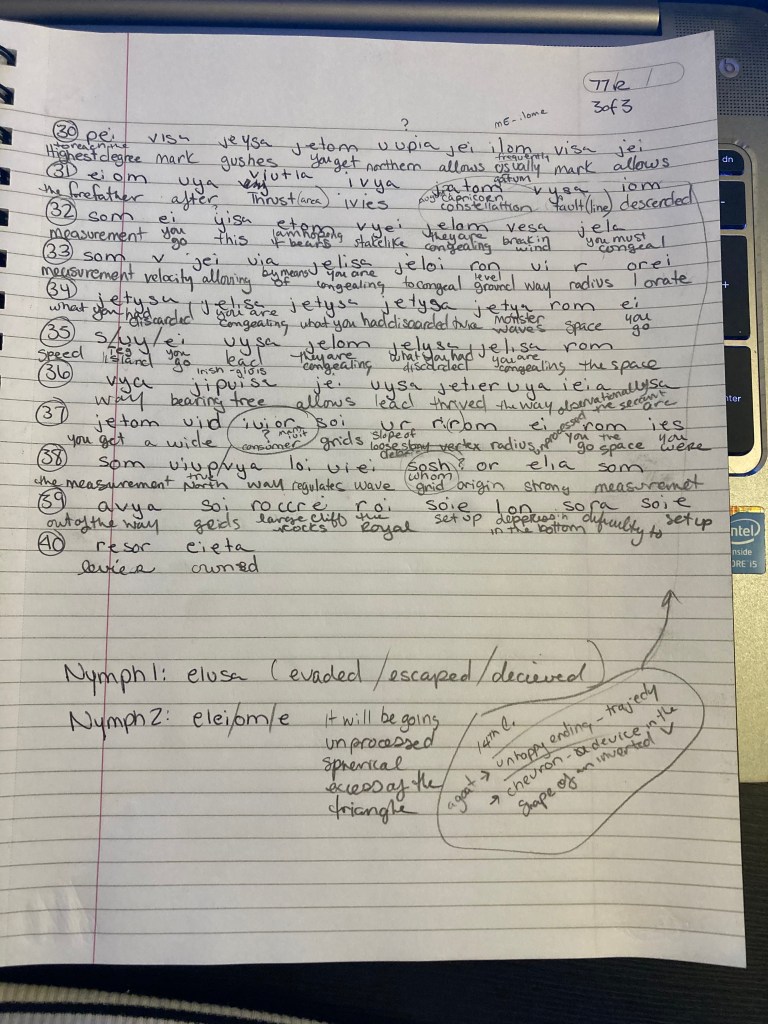 77r
3 of 3
? mE-..lome
30 pei visa jeysa jetom uupia jei ilom visa jei
Highest degree mark gushes you get northern allows usually mark allows
frequently
31 eiom uya viutia ivya gatom vysa iom
the forefather after Thrust (area) ivies capricorn constellation fault (line) descended
32 som ei yisa etom vyei elom vesa jela
measurement you go this if bears statelike they are congealing break in wind you must congeal
33 som v jei via jelisa jeloi ron vi r orei
measurement velocity allowing by means of you are congealing to congeal ground level way radius I orate
34 jetysa jelisa jetysa jetysa jetya rom ei
what you had discarded you are congealing what you had discarded monster waves space you go
35 s/vy/ei uysa jelom jelysa jelisa rom
speed island you go lead they are congealing what you had discarded you are congealing the space
Irish-glois
36 vya jipuisa jei uysa jetier uya ieia
way bearing tree allows lead thrived the way observationally
37 jetom uid iuior soi ur rirbm ei rom ies
you get a wide consumer grids slope of loose stony debris vertex radius unprocessed you go the space you were
38 som uiup/vya loi viei sosh? or elia som
the measurement true North way regulates wave whom grid origin strong measuremet
39 avya soi roccre roi soie lon sora soie
out of the way grids large cliff rocks the Royal set up depression in the bottom difficulty to set up
40 resor eieta
owned
Nymph 1: elusa (evaded/escaped/decieved)
Nymph 2: elei/om/e it will be going
unprocessed
spherical
excess of the
triangle
14th C.
agoat → unhappy ending - trajedy
→ chevron - a device in the
shape of an inverted V
dn
enter
intel
inside
CORE i5